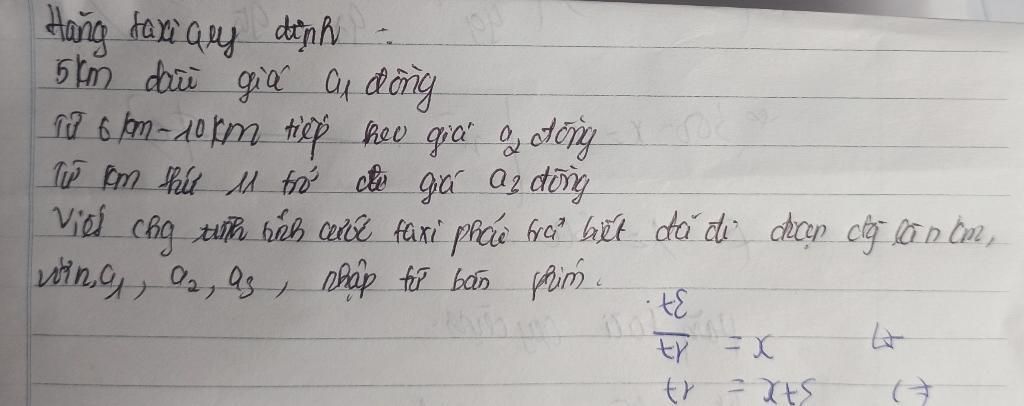 Hãng taxi quy định :
5 km đầu giá a1 đồng
Từ 6 km - 10 km tiếp theo giá a2 đồng
Từ km thứ 11 trở đi giá a3 đồng
Viết chg trình tính cước taxi phải trả biết đã đi đoạn đg là n km,
với n, a1, a2, a3, nhập từ bàn phím.
x = 17/37
5+x = 17